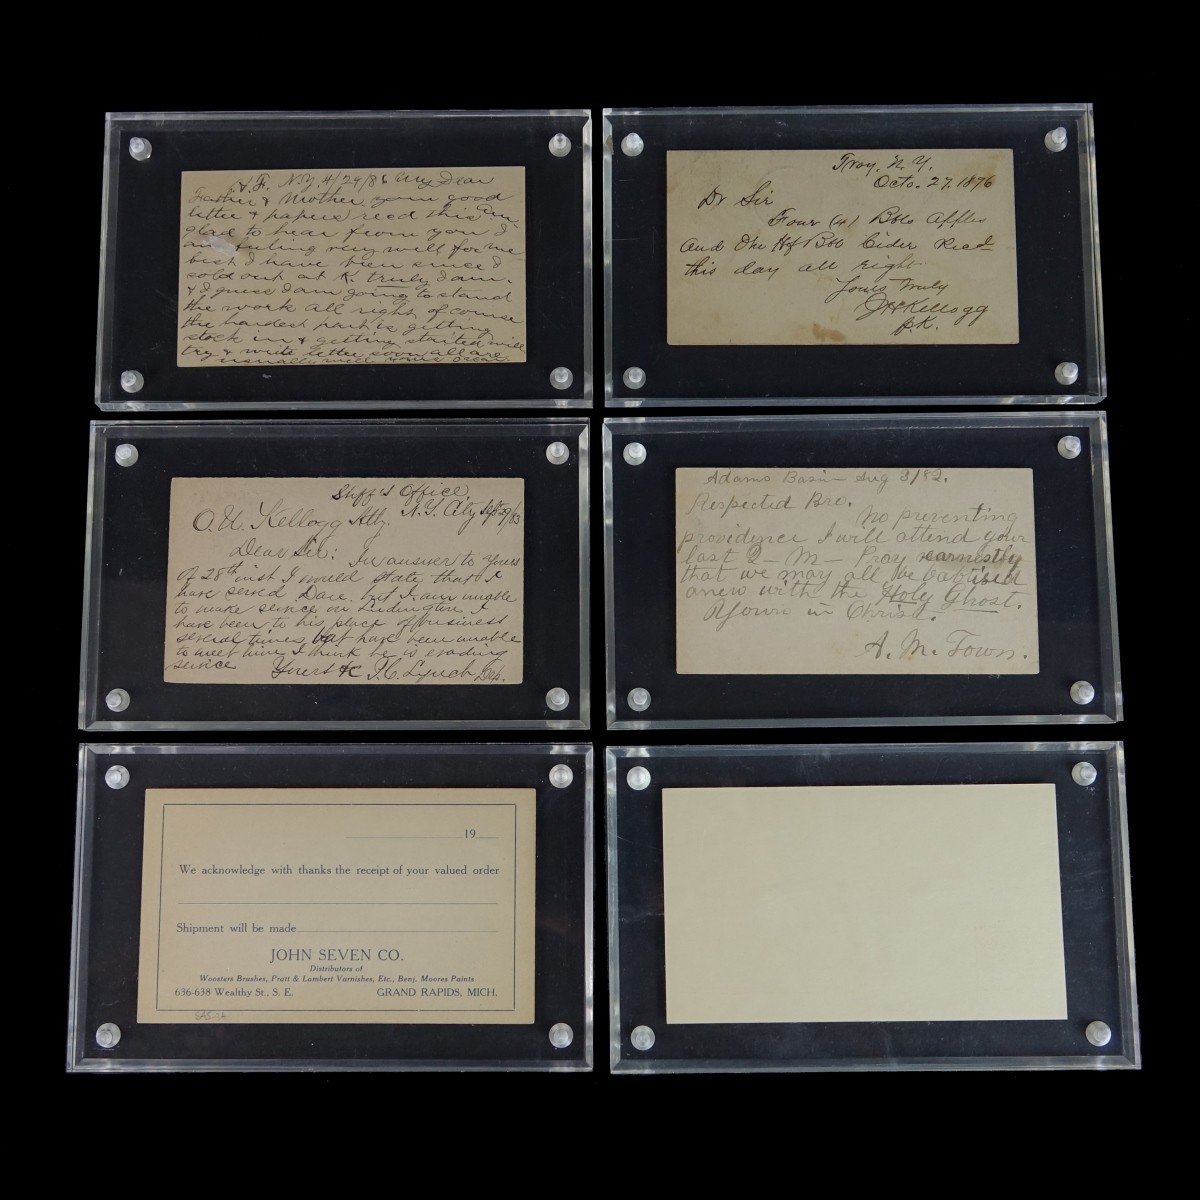 N.Y. 4/29/86 My Dear
Father & Mother your good
letter & papers recd this am
glad to hear from you I
am feeling very well for me
best I have been since I
sold out at K. truly I am.
& I guess I am going to stand
the work all right of course
the hardest part is getting
stock in & getting started will
try & write letter soon all are
usually well yours Oscar
Troy, N.Y.
Octo. 27, 1876
Dr Sir
Four (4) Bbls Apples
And One Hf Bbl Cider Recd
this day all right
Yours Truly
Kellogg
Shff's Office
N.Y. City Sept 29/83
O. U. Kellogg Atty.
Dear Sir: In answer to yours
of 28th inst I would state that I
have served Dare but I am unable
to make service on Ludington. I
have been to his place of business
several times but have been unable
to meet him I think he is evading
service Yours &c Lynch Dep.
Adams Basin Aug 3/82.
Respected Bro.
No preventing
providence I will attend your
last Q- M- Pray earnestly
that we may all be baptised
anew with the Holy Ghost.
Yours in Christ.
A. M. Town.
19
We acknowledge with thanks the receipt of your valued order
Shipment will be made
JOHN SEVEN CO.
Distributors of
Woosters Brushes, Pratt & Lambert Varnishes, Etc., Benj. Moores Paints
636-638 Wealthy St., S. E. GRAND RAPIDS, MICH.